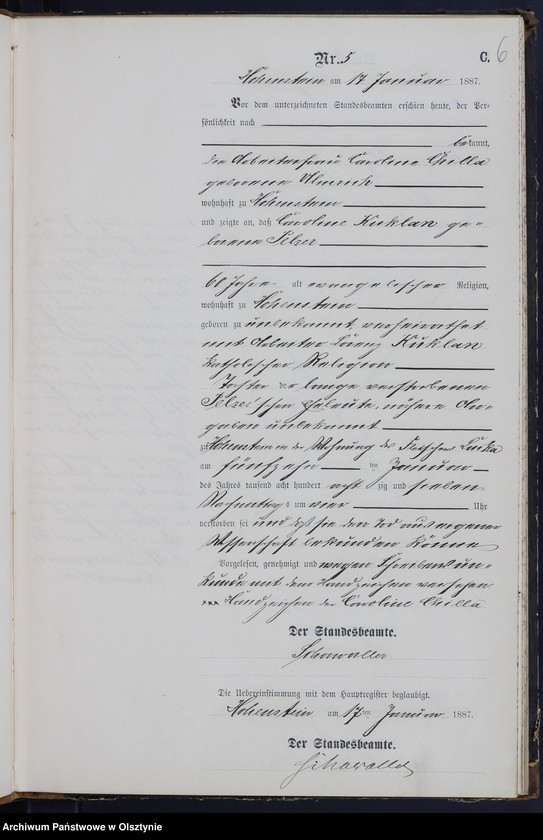 Nr. 5
C. 6
Hohenstein am 17 Januar 1887.
Vor dem unterzeichneten Standesbeamten erschien heute, der Per-
sönlichkeit nach
bekannt,
die Arbeiterfrau Caroline Chilla
geborene
wohnhaft zu Hohenstein
und zeigte an, daß Caroline Kuklan ge-
borene Pelzer
60 Jahre alt evangelischer Religion,
wohnhaft zu Hohenstein
geboren zu unbekannt, verheirathet
mit Arbeiter Kuklan
katholischer Religion
Tochter der lange verstorbenen
Pelzer'schen Eheleute, nähere An-
gaben unbekannt
zu Hohenstein in der Wohnung des
am fünfzehn ten Januar
des Jahres tausend acht hundert acht zig und sieben
Nachmittags um vier Uhr
verstorben sei und daß sie den Tod aus eigener
Wissenschaft bekunden könne
Vorgelesen, genehmigt und wegen Schreibensun-
kunde mit dem Handzeichen versehen
xxx Handzeichen der Caroline Chilla
Der Standesbeamte.
Schawaller
Die Uebereinstimmung mit dem Hauptregister beglaubigt.
Hohenstein am 17ten Januar 1887.
Der Standesbeamte.
Schawaller
Archiwum Państwowe w Olsztynie